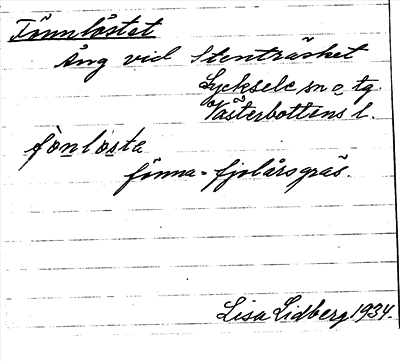 Fönnlöstet
Äng vid Stenträsket
Lycksele sn o. tg.
Västerbottens l.
fònlòste
fönna = fjolårsgräs.
Lisa Lidberg 1934.